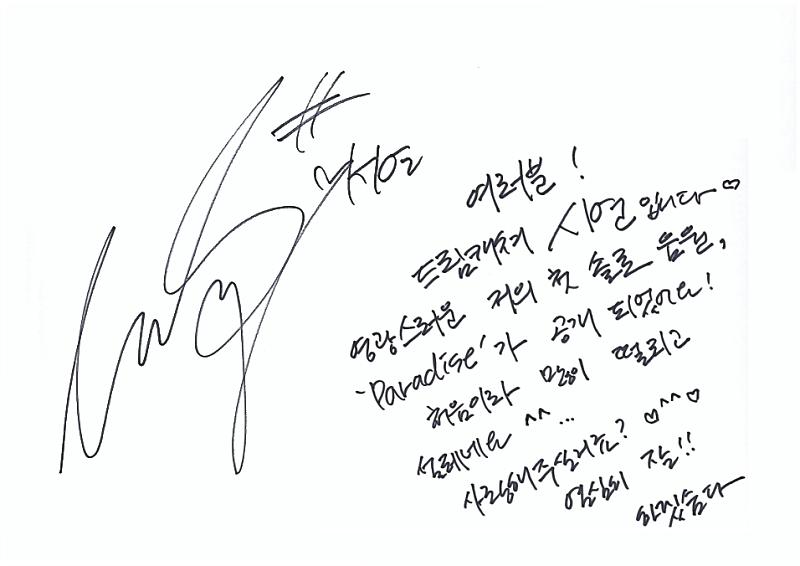 #
♡시연
여러분!
드림캐쳐 시연입니다♡
영광스러운 저의 첫 솔로 음원,
'Paradise'가 공개 되었어요!
처음이라 많이 떨리고
설레네요 ^^...
사랑해주실거죠? ♡^^♡
열심히 잘!!
하겠습니다